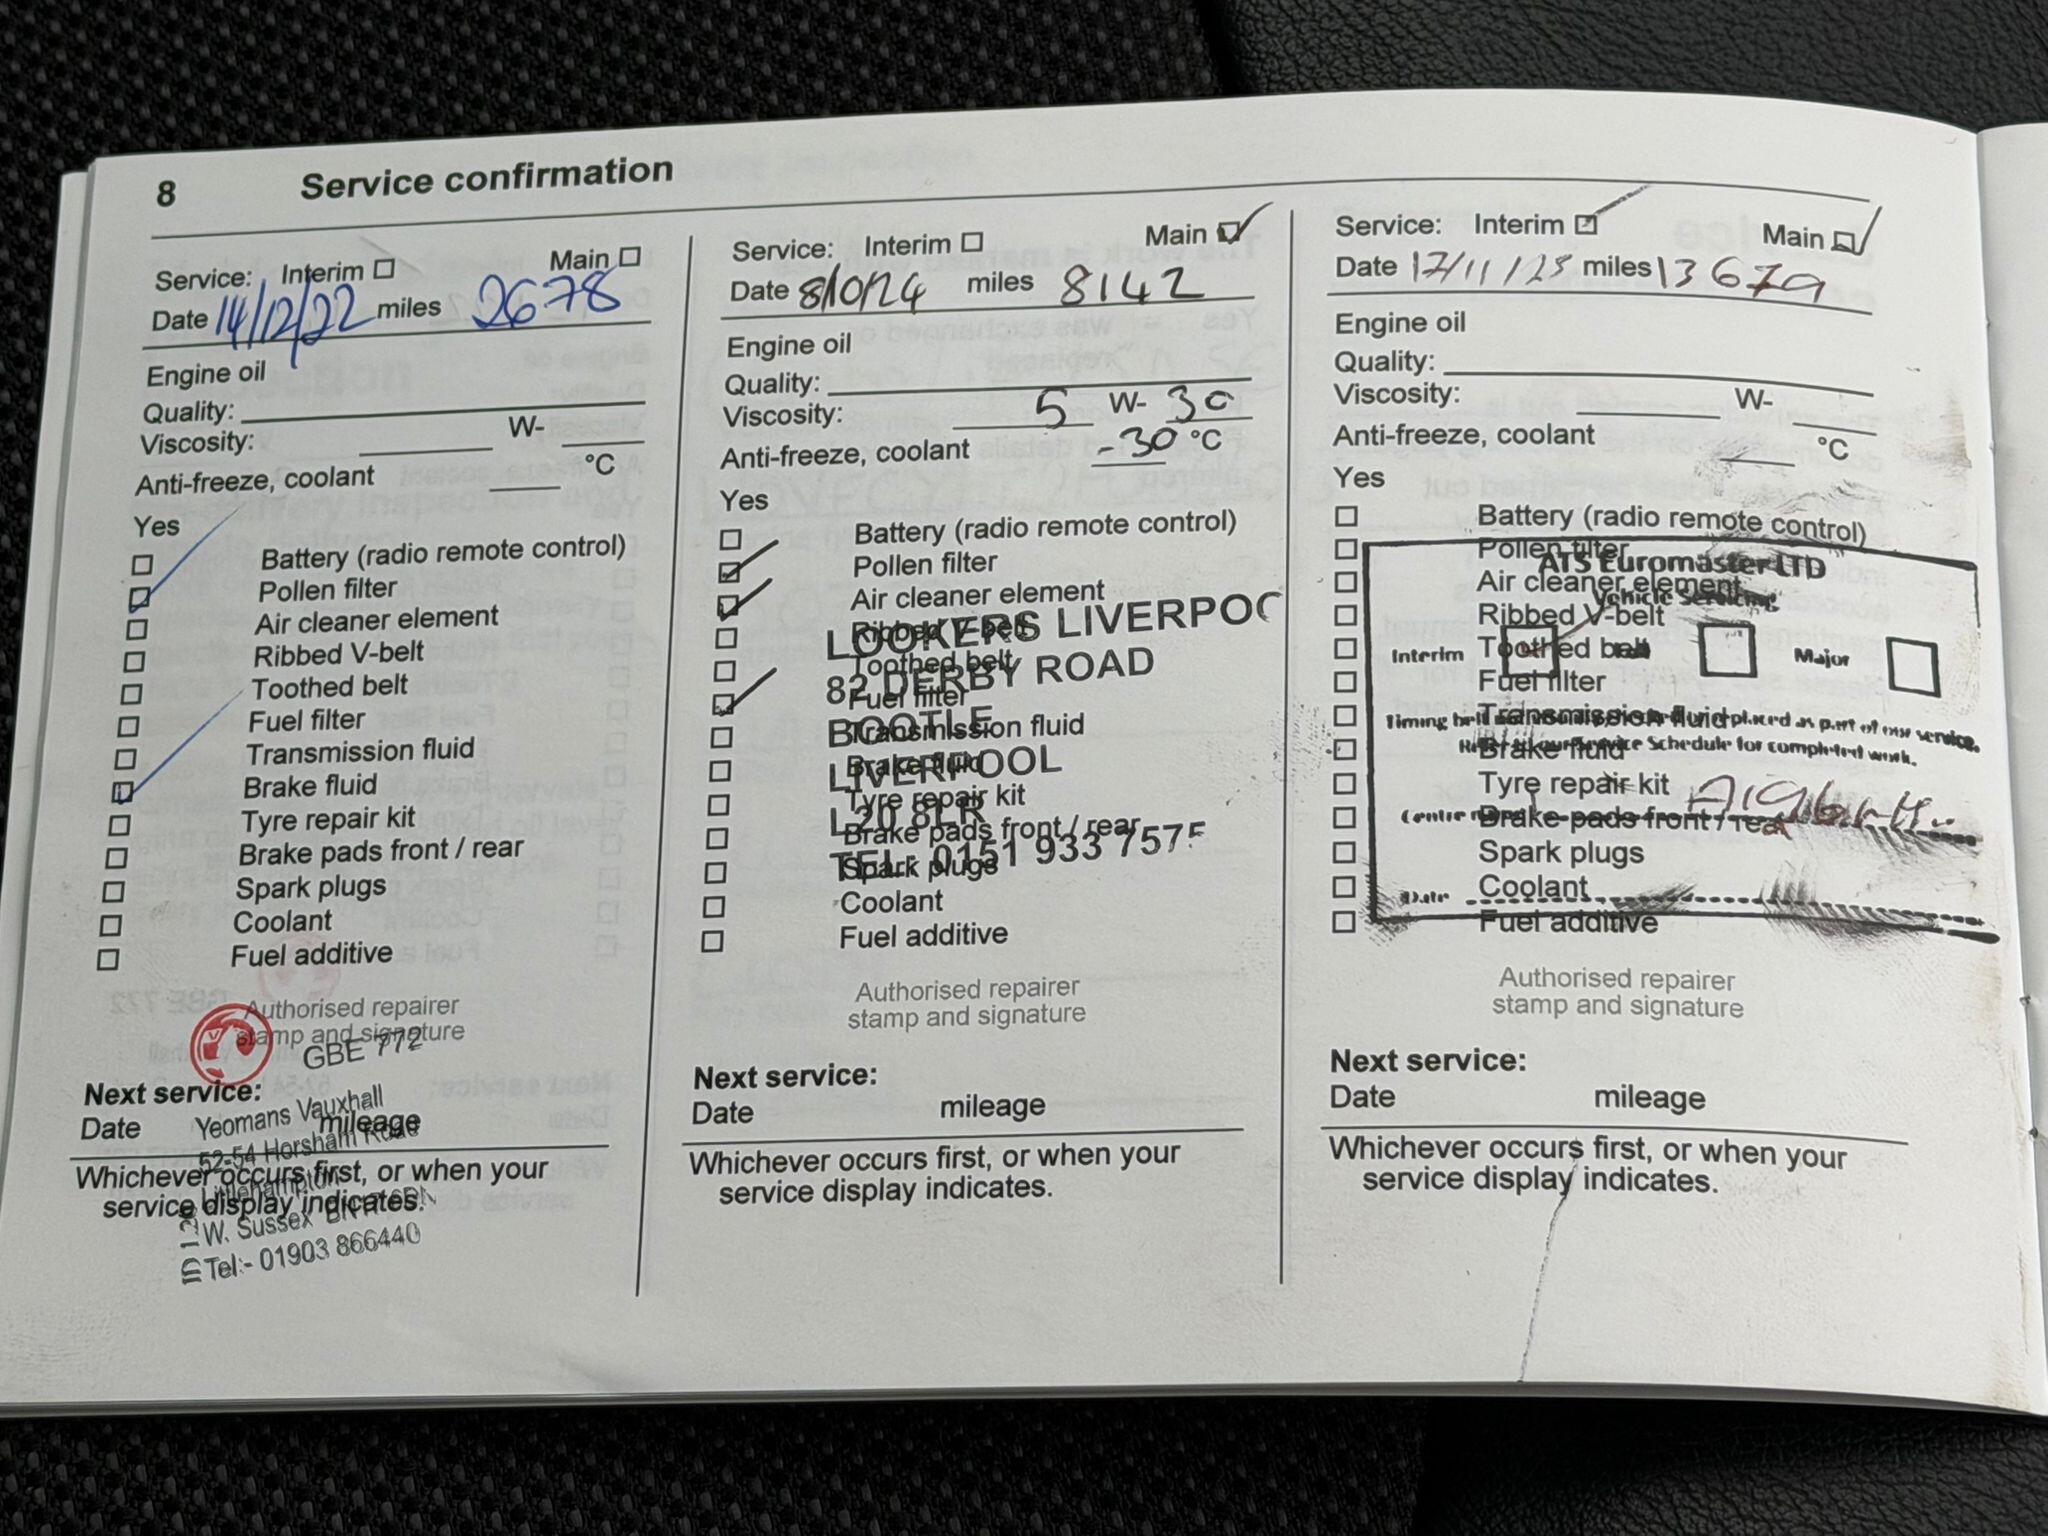 8 Service confirmation
Service: Interim Main
Date 14/12/22 miles 2678
Engine oil
Quality:
Viscosity: W-
Anti-freeze, coolant °C
Yes
Battery (radio remote control)
Pollen filter
Air cleaner element
Ribbed V-belt
Toothed belt
Fuel filter
Transmission fluid
Brake fluid
Tyre repair kit
Brake pads front / rear
Spark plugs
Coolant
Fuel additive
Authorised repairer
stamp and signature
GBE 772
Next service:
Date mileage
Yeomans Vauxhall
52-54 Horsham Road
Whichever occurs first, or when your
service display indicates.
Littlehampton
W. Sussex
Tel:- 01903 866440
Service: Interim Main
Date 8/10/24 miles 8142
Engine oil
Quality:
Viscosity: 5 W- 30
Anti-freeze, coolant -30 °C
Yes
Battery (radio remote control)
Pollen filter
Air cleaner element
Ribbed V-belt
Toothed belt
Fuel filter
Transmission fluid
Brake fluid
Tyre repair kit
Brake pads front / rear
Spark plugs
Coolant
Fuel additive
LOOKERS LIVERPOO
82 DERBY ROAD
BOOTLE
LIVERPOOL
L20 8LR
TEL: 0151 933 7575
Authorised repairer
stamp and signature
Next service:
Date mileage
Whichever occurs first, or when your
service display indicates.
Service: Interim Main
Date 17/11/25 miles 13679
Engine oil
Quality:
Viscosity: W-
Anti-freeze, coolant °C
Yes
Battery (radio remote control)
Pollen filter
Air cleaner element
Ribbed V-belt
Toothed belt
Fuel filter
Transmission fluid
Brake fluid
Tyre repair kit
Brake pads front / rear
Spark plugs
Coolant
Fuel additive
ATS Euromaster LTD
Vehicle Servicing
Interim Major
Timing belt placed as part of our service.
Service Schedule for completed work.
Centre
Date
Authorised repairer
stamp and signature
Next service:
Date mileage
Whichever occurs first, or when your
service display indicates.